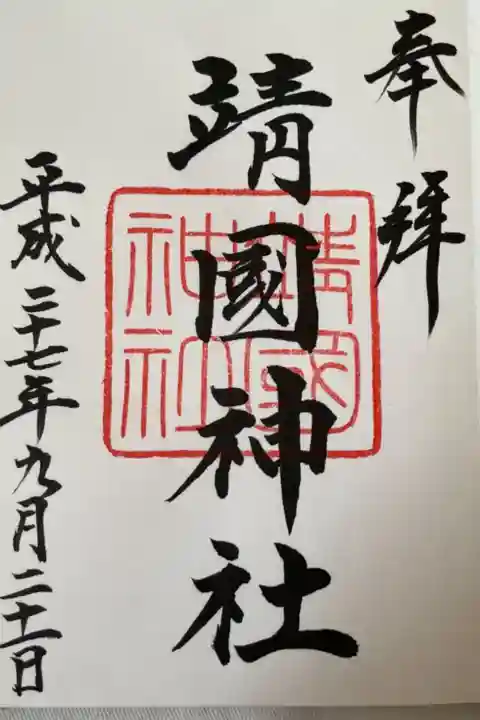 奉拝
靖國神社
靖國
神社
平成二十七年九月二十一日